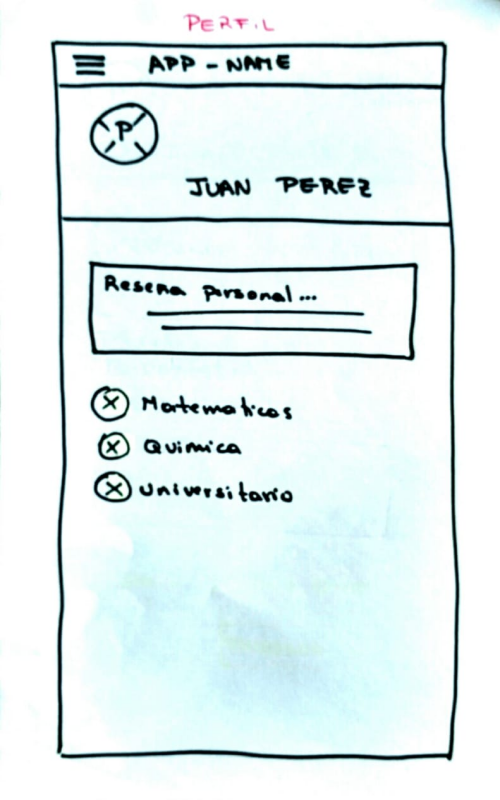 PERFIL
APP - NAME
P
JUAN PEREZ
Resena personal...
Matematicas
Quimica
Universitario